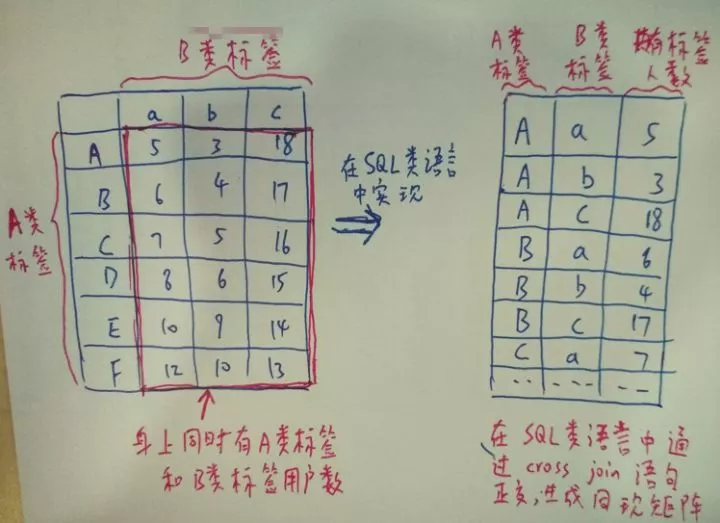 B类标签
a b c
A 5 3 18
B 6 4 17
C 7 5 16
D 8 6 15
E 10 9 14
F 12 10 13
A类
标签
身上同时有A类标签
和B类标签用户数
在SQL类语言
中实现
A类
标签
B类
标签
标签
人数
A a 5
A b 3
A c 18
B a 6
B b 4
B c 17
C a 7
·· ··· --
在SQL类语言中通
过cross join语句
生成同现矩阵